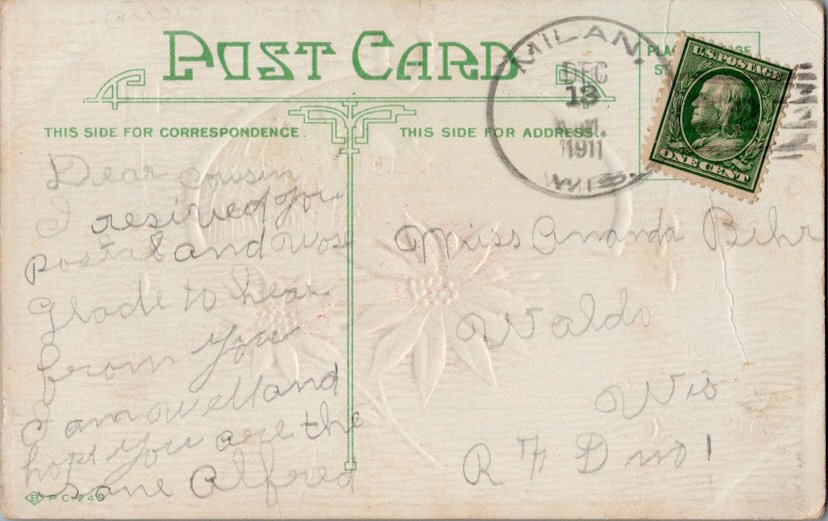 POST CARD
THIS SIDE FOR CORRESPONDENCE
THIS SIDE FOR ADDRESS
MILAN.
DEC
13
1911
WIS.
U.S. POSTAGE
ONE CENT
Dear Cousin
I resirved your
postal and wose
glade to hear
from you
I am well and
hope you are the
same Alfred
Miss Amanda Bihr
Waldo
Wis
R F D no 1
P C 249